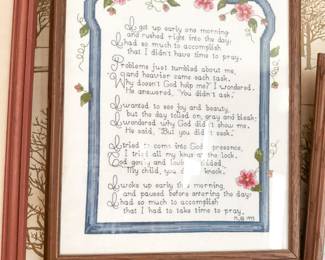 I got up early one morning
and rushed right into the day;
I had so much to accomplish
that I didn't have time to pray.
Problems just tumbled about me,
and heavier came each task.
Why doesn't God help me? I wondered.
He answered, "You didn't ask."
I wanted to see joy and beauty,
but the day toiled on, gray and bleak;
I wondered why God didn't show me.
He said, "But you didn't seek."
I tried to come into God's presence,
I tried all my keys at the lock.
God gently and
My child, you didn't knock."
I woke up early this morning
and paused before entering the day;
I had so much to accomplish
that I had to take time to pray.